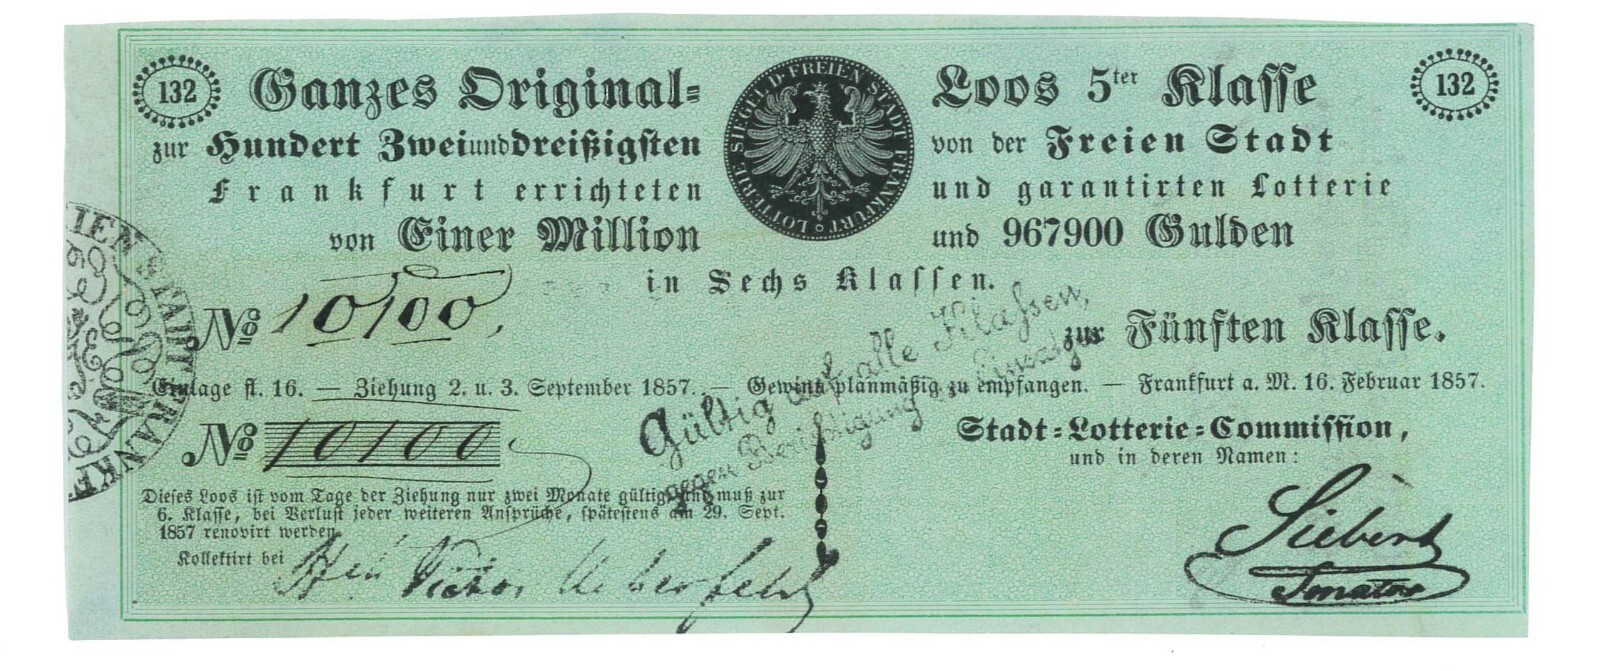 132 Ganzes Original= Loos 5ter Klasse 132
zur Hundert Zweiunddreißigsten von der Freien Stadt
Frankfurt errichteten und garantirten Lotterie
von Einer Million und 967900 Gulden
LOTTERIE SIEGEL D. FREIEN STADT FRANKFURT
in Sechs Klassen.
No 10100,
zur Fünften Klasse.
Einlage fl. 16. — Ziehung 2. u. 3. September 1857. — Gewinn planmäßig zu empfangen. — Frankfurt a. M. 16. Februar 1857.
No 10100
Stadt=Lotterie=Commission,
und in deren Namen:
Dieses Loos ist vom Tage der Ziehung nur zwei Monate gültig und muß zur
6. Klasse, bei Verlust jeder weiteren Ansprüche, spätestens am 29. Sept.
1857 renovirt werden.
Kollektirt bei
Siebert
Senator
Gültig auf alle Klaßen,
gegen Berichtigung Einsatz
IEN STADT FRANKF